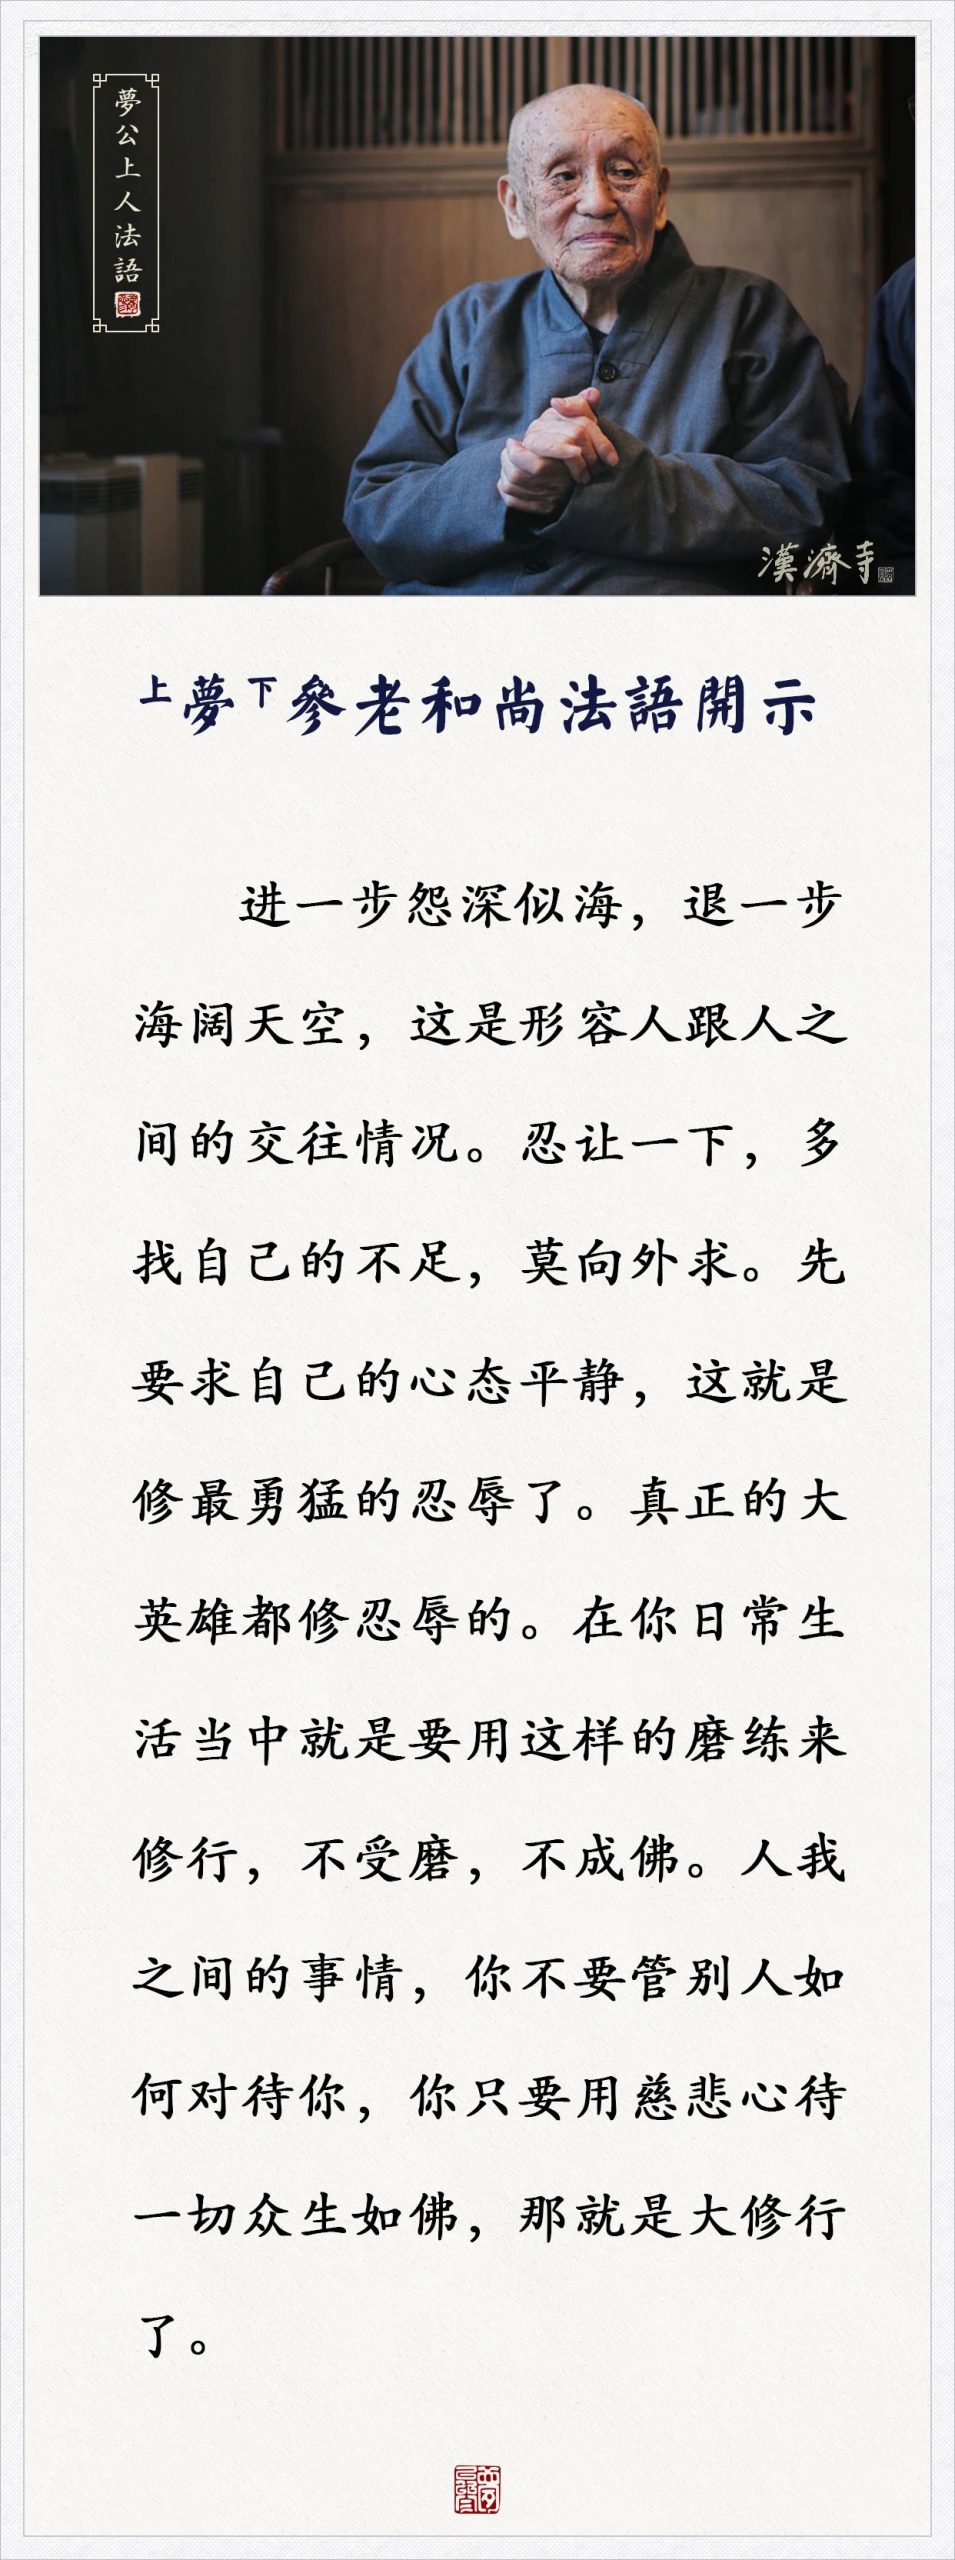 夢公上人法語
漢濟寺
上夢下參老和尚法語開示
进一步怨深似海，退一步
海阔天空，这是形容人跟人之
间的交往情况。忍让一下，多
找自己的不足，莫向外求。先
要求自己的心态平静，这就是
修最勇猛的忍辱了。真正的大
英雄都修忍辱的。在你日常生
活当中就是要用这样的磨练来
修行，不受磨，不成佛。人我
之间的事情，你不要管别人如
何对待你，你只要用慈悲心待
一切众生如佛，那就是大修行
了。